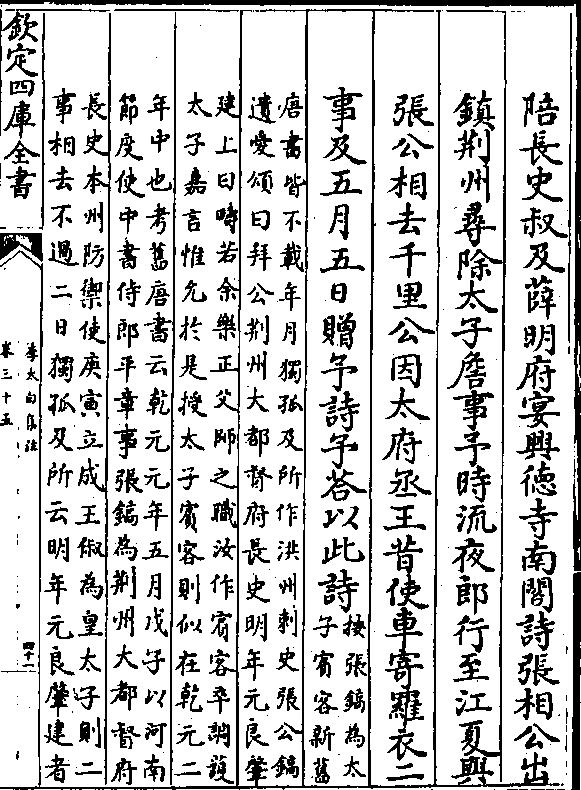 陪長史叔及薛明府宴興德寺南閣詩張相公出
鎮荆州尋除太子詹事予時流夜郎行至江夏與
張公相去千里公因太府丞王昔使車寄羅衣二
事及五月五日贈予詩予荅以此詩
按張鎬為太
子賓客新舊
唐書皆不載年月獨孤及所作洪州刺史張公鎬
遺愛頌曰拜公荆州大都督府長史明年元良肇
建上曰疇若余樂正父師之職汝作賓客卒調護
太子嘉言惟允於是授太子賓客則似在乾元二
年中也考舊唐書云乾元元年五月戊子以河南
節度使中書侍郎平章事張鎬為荆州大都督府
長史本州防禦使庚寅立成王俶為皇太子則二
事相去不過二日獨孤及所云明年元良肇建者
欽定四庫全書
李太白集注
卷三十五
四十一